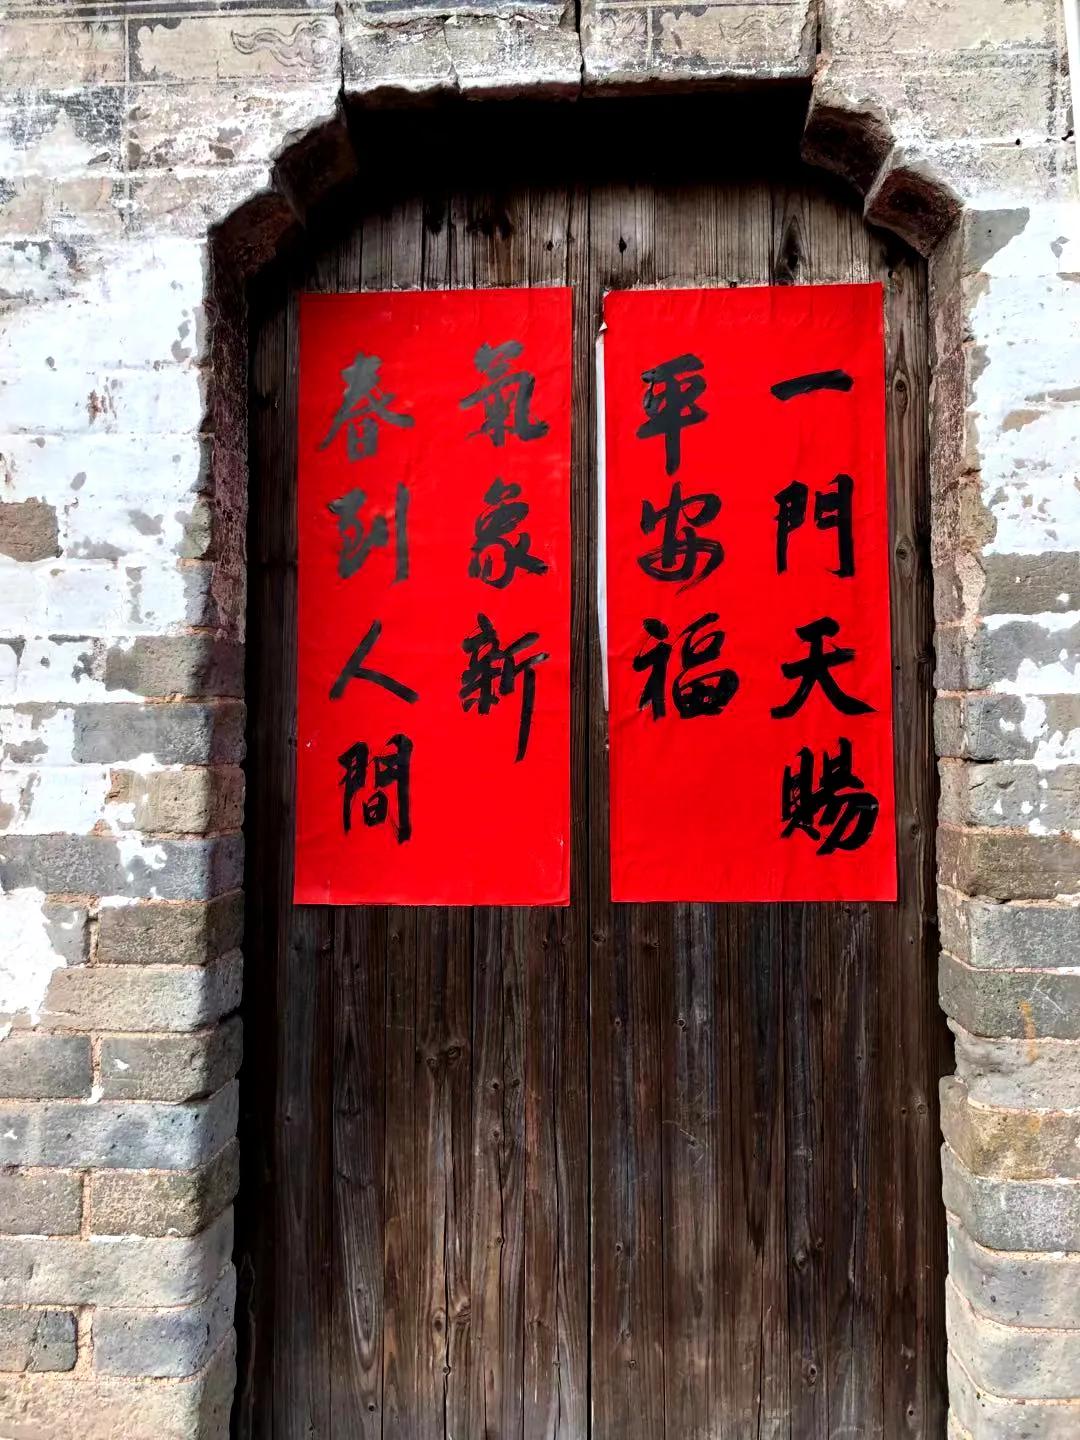 一門天賜
平安福
春到人間
氣象新